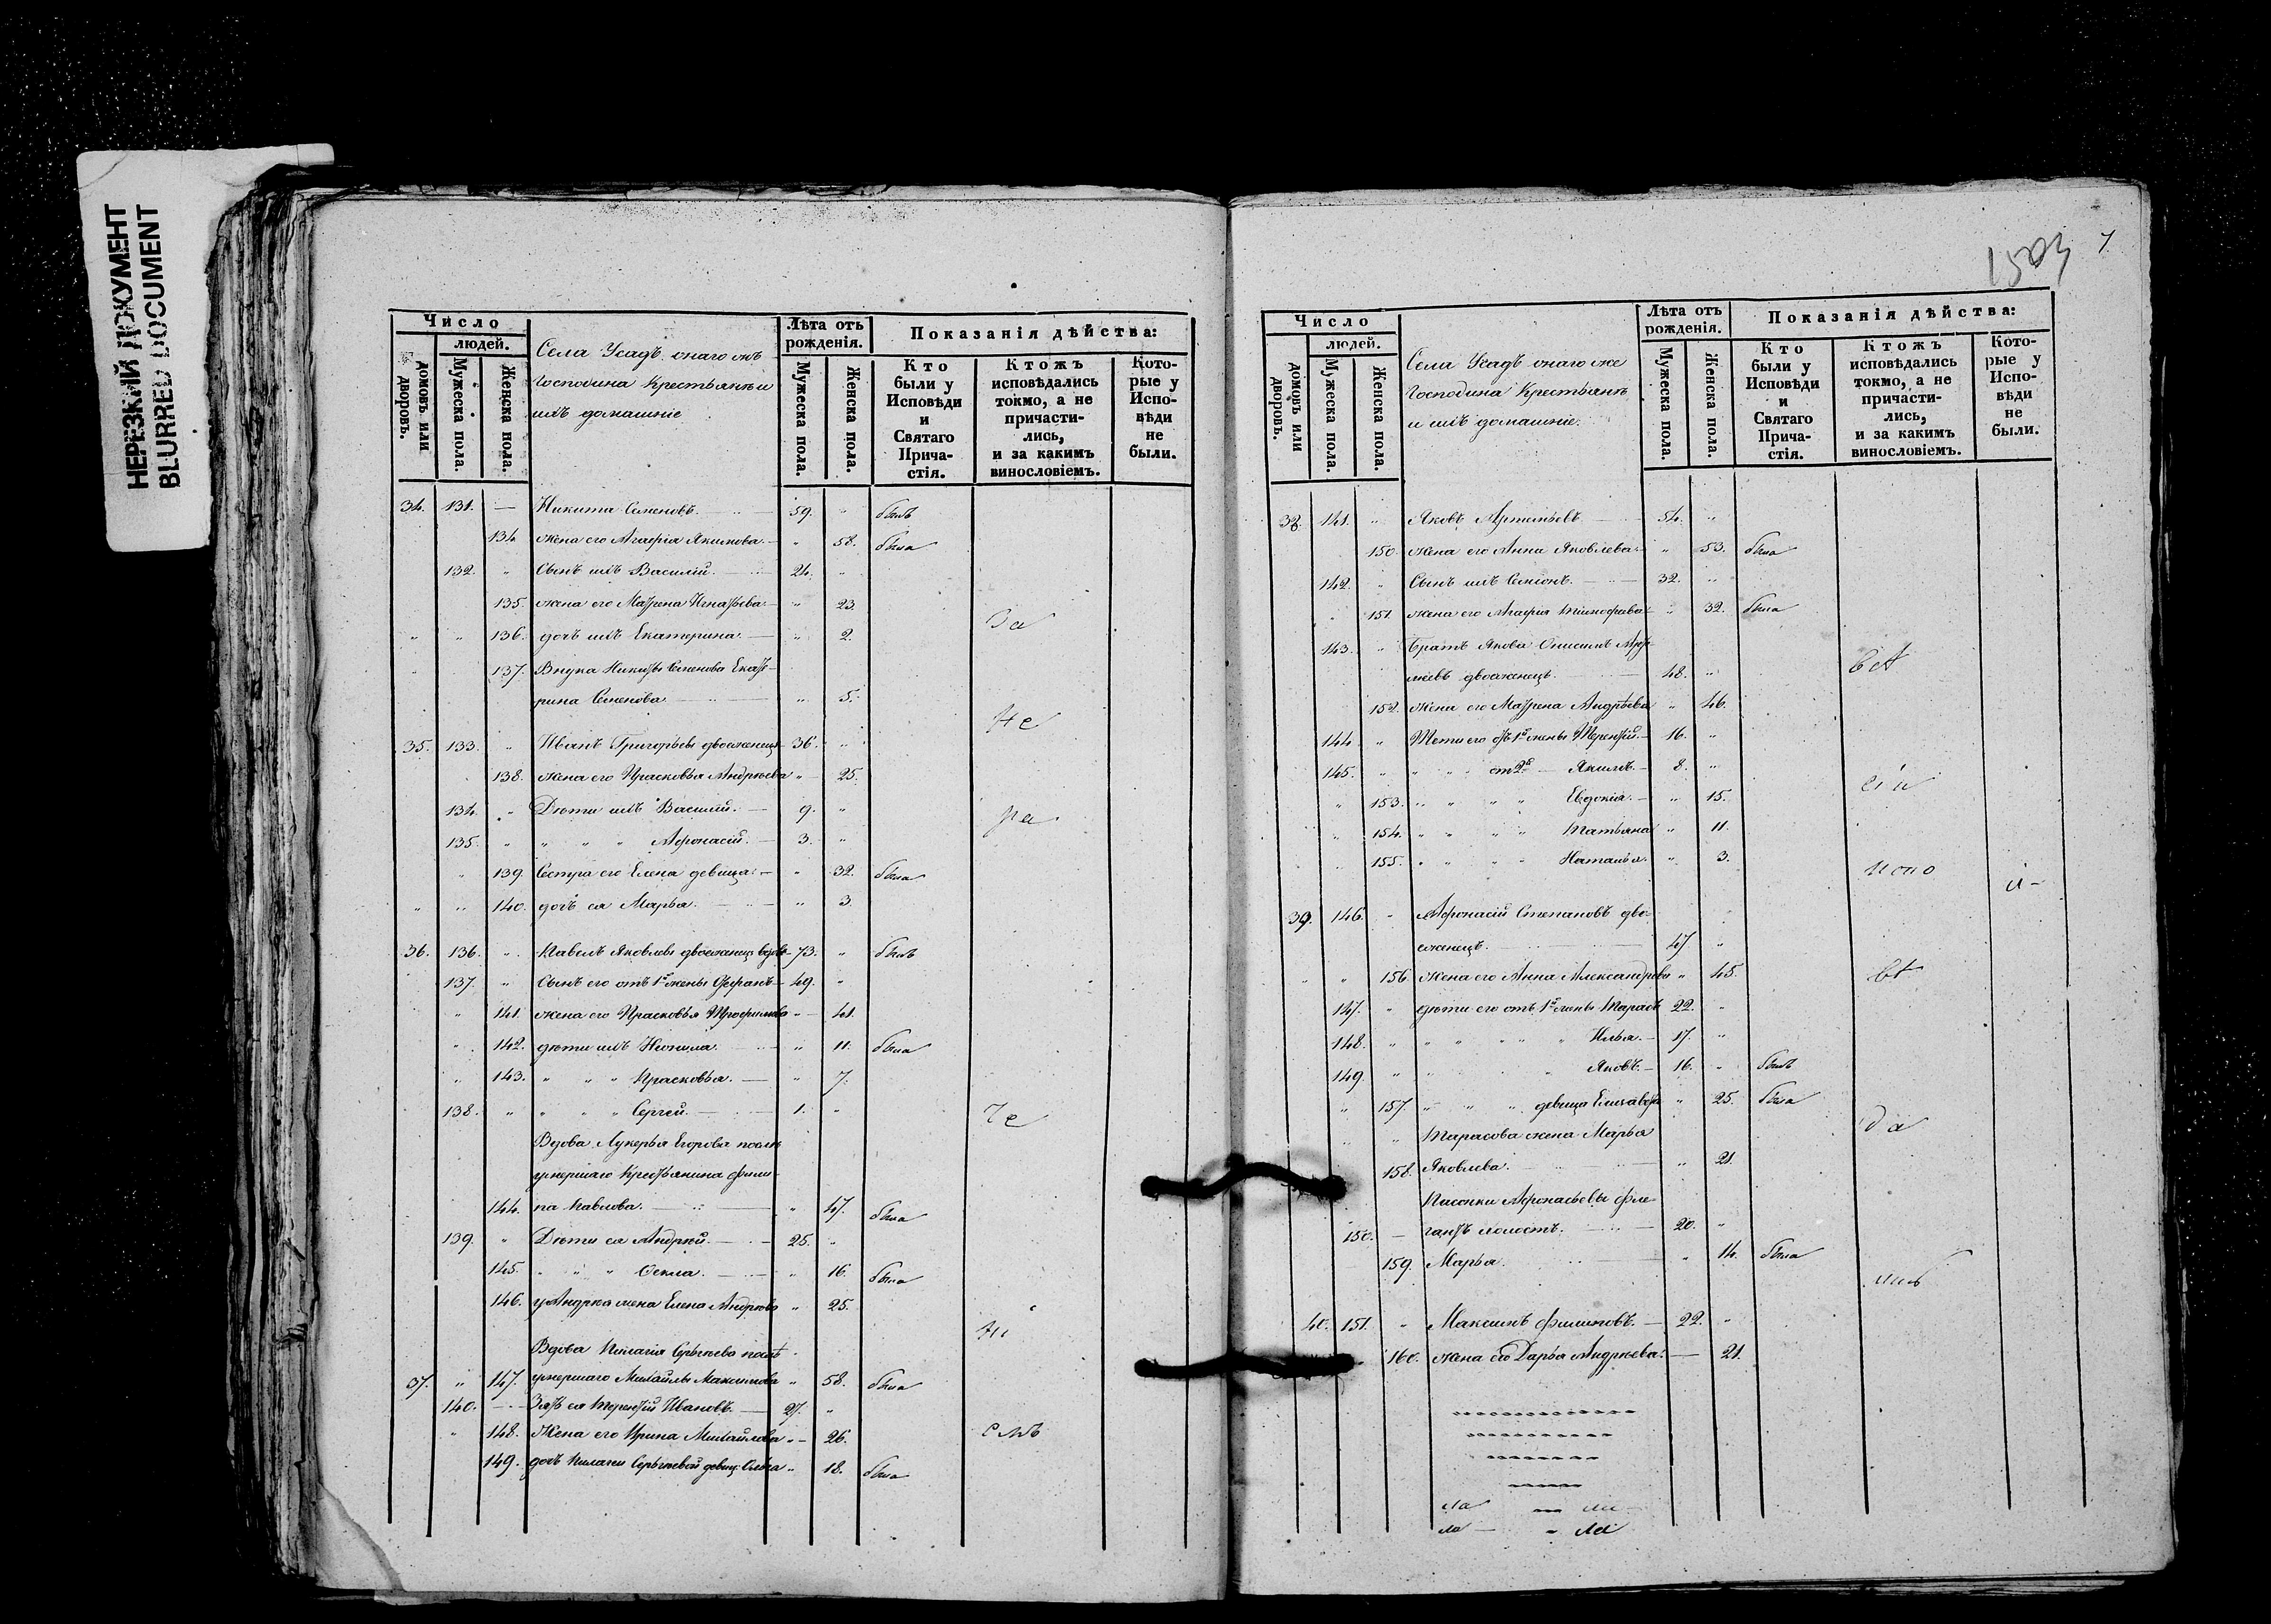 НЕРЕЗКИЙ ДОКУМЕНТ
BLURRED DOCUMENT
Число
людей.
домовъ или дворовъ.
Мужеска пола.
Женска пола.
Села Усадъ онаго жъ
Господина Крестьяне и
ихъ домашніе
Лѣта отъ рожденія.
Мужеска пола.
Женска пола.
Показанія дѣйства:
Кто были у Исповѣди и Святаго Прича-стія.
Ктожъ исповѣдались токмо, а не причасти-лись, и за какимъ винословіемъ.
Кото-рые у Испо-вѣди не были.
34. 131. — Никита Семеновъ. 59. " былъ
134 жена его Агафіа Якимова. " 58. была
132. " Сынъ ихъ Василій. 24. "
135. жена его Матрена Игнатьева. " 23
За
" " 136. дочь ихъ Екатерина. " 2.
137. Внука Никиты Семенова Екате-
рина Семенова " 5.
Не
35. 133. " Иванъ Григорьевъ двоеженецъ 36. "
138. жена его Прасковья Андреева " 25.
134. " Дѣти ихъ Василій. 9. "
ра
135. " " " " Афонасій. 3. "
" 139. Сестра его Елена девица. " 32. была
" " 140. дочь ея Марья. " 3.
36. 136. " Павелъ Яковлевъ двоеженецъ вдовъ 73. " былъ
137. " Сынъ его отъ 1й жены Стефанъ 49. "
" 141. жена его Прасковья Трофимова " 41.
" 142. дѣти ихъ Неонила. " 11. была
" 143. " " " Прасковья. " 7.
138. " " " " Сергей. 1. "
Че
Вдова Лукерья Егорова послѣ
умершаго Крестьянина Фили-
144. па Павлова. " 47. была
139. " Дѣти ея Андрей. 25. "
145. " " " Фекла. " 16. была
146. у Андрея жена Елена Андреева " 25.
Вдова Пелагія Сергеева послѣ
37. " 147. умершаго Михайлы Максимова " 58. была
140. — Зять ея Терентій Ивановъ. 27. "
" 148. Жена его Ирина Михайлова " 26.
149. дочь Пелагеи Сергеевой девиц. Ольга " 18. была
7
Число
людей.
домовъ или дворовъ.
Мужеска пола.
Женска пола.
Села Усадъ онаго же
Господина Крестьяне
и ихъ домашніе.
Лѣта отъ рожденія.
Мужеска пола.
Женска пола.
Показанія дѣйства:
Кто были у Исповѣди и Святаго Прича-стія.
Ктожъ исповѣдались токмо, а не причасти-лись, и за какимъ винословіемъ.
Кото-рые у Испо-вѣди не были.
38. 141. " Яковъ Артемьевъ 54. "
150. жена его Анна Яковлева. " 53. была
142. " Сынъ ихъ Семіонъ. 32. "
151. жена его Агафія Тимофеева " 32. была
143. " Братъ Якова Онисимъ Арте-
мьевъ двоеженецъ. 48. "
152. Жена его Матрена Андреева " 46.
144. " Дети его отъ 1й жены Терентій. 16. "
145. " " " от 2й Якимъ. 8. "
" 153. " " " " Евдокія. " 15.
" 154. " " " " Татьяна " 11.
155. " " " " Наталья. " 3.
испо
39. 146. " Афонасій Степановъ дво-
еженецъ. 47 "
" " 156. Жена его Анна Александрова " 45.
147. " дѣти его отъ 1й жены Тарасъ 22. "
148. " " " " " " Илья. 17. "
149. " " " Яковъ. 16. " былъ
" 157. " " " девица Елизавета " 25. была
" Тарасова жена Марья
158. Яковлева. " 21.
да
Пасынки Афонасьевы Фле-
150. — гантъ холостъ. 20. "
159. Марья. " 14. была
40. 151. " Максимъ Филиповъ. 22. "
160. жена его Дарья Андреева. 21.